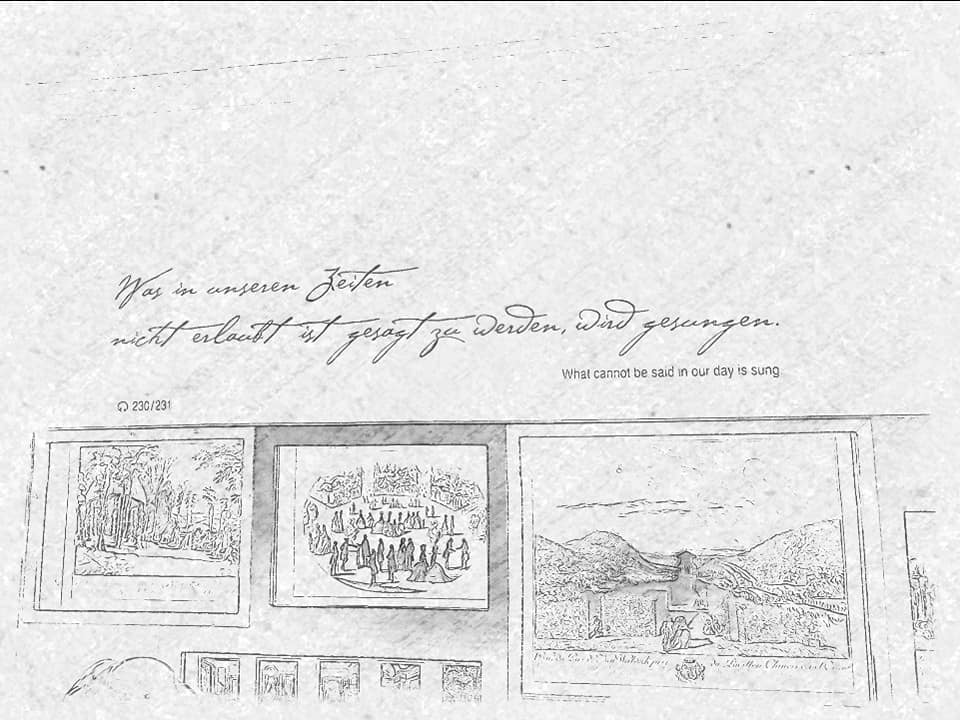 Was in unseren Zeiten
nicht erlaubt ist gesagt zu werden, wird gesungen.
What cannot be said in our day is sung
230/231